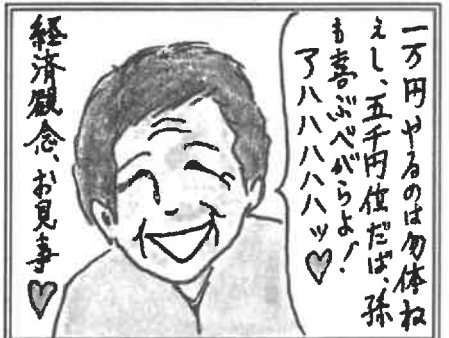 一万円やるのは勿体ね
えし、五千円位だば、孫
も喜ぶべがらよ!
アハハハハハッ♡
経済観念、お見事♡